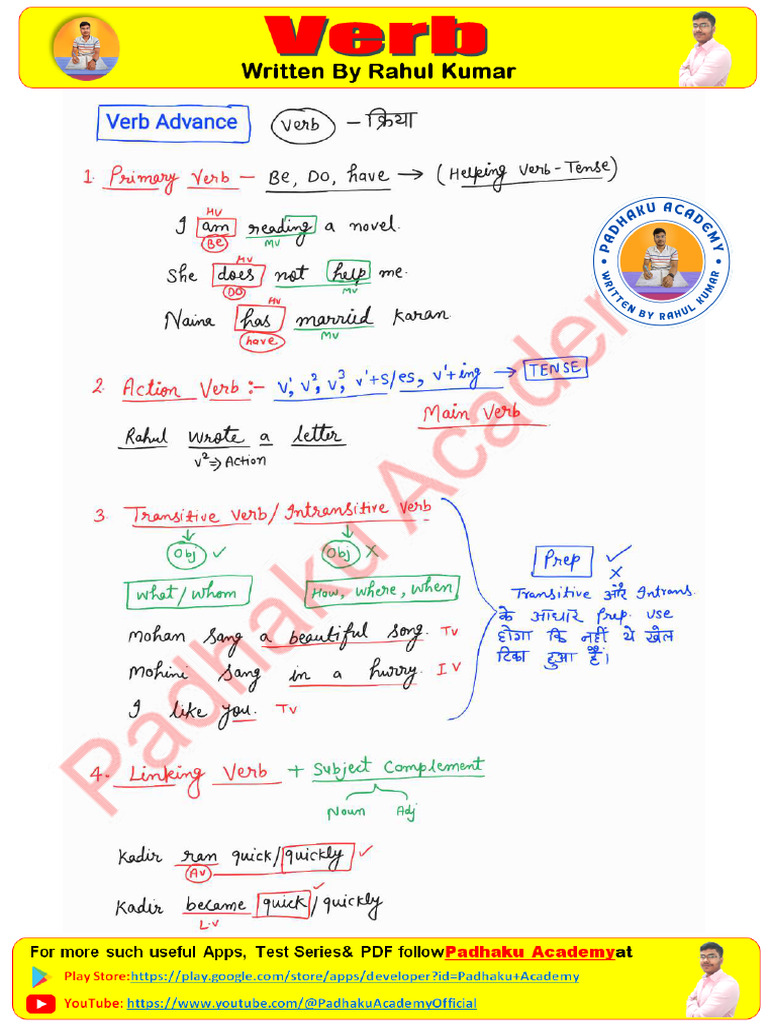 Verb
Written By Rahul Kumar
Verb Advance verb - क्रिया
1. Primary Verb - Be, Do, have → (Helping Verb-Tense)
HV
I am reading a novel.
Be MV
HV
She does not help me.
DO MV
HV
Naina has married Karan.
have MV
PADHAKU ACADEMY
WRITTEN BY RAHUL KUMAR
2. Action Verb :- V¹, V², V³, V¹+s/es, V¹+ing → TENSE
Main Verb
Rahul wrote a letter
V² => Action
3. Transitive verb/Intransitive Verb
Obj ✓ Obj X
what/whom How, where, when
Mohan sang a beautiful song. TV
Mohini sang in a hurry. IV
I like you. TV
Prep ✓
X
Transitive और Intrans.
के आधार Prep. use
होगा कि नहीं ये खेल
टिका हुआ है।
4. Linking Verb + Subject Complement
Noun Adj
Kadir ran quick/quickly ✓
AV
Kadir became quick/quickly ✓
L.V
Padhaku Academy
For more such useful Apps, Test Series& PDF followPadhaku Academyat
Play Store:https://play.google.com/store/apps/developer?id=Padhaku+Academy
YouTube: https://www.youtube.com/@PadhakuAcademyOfficial